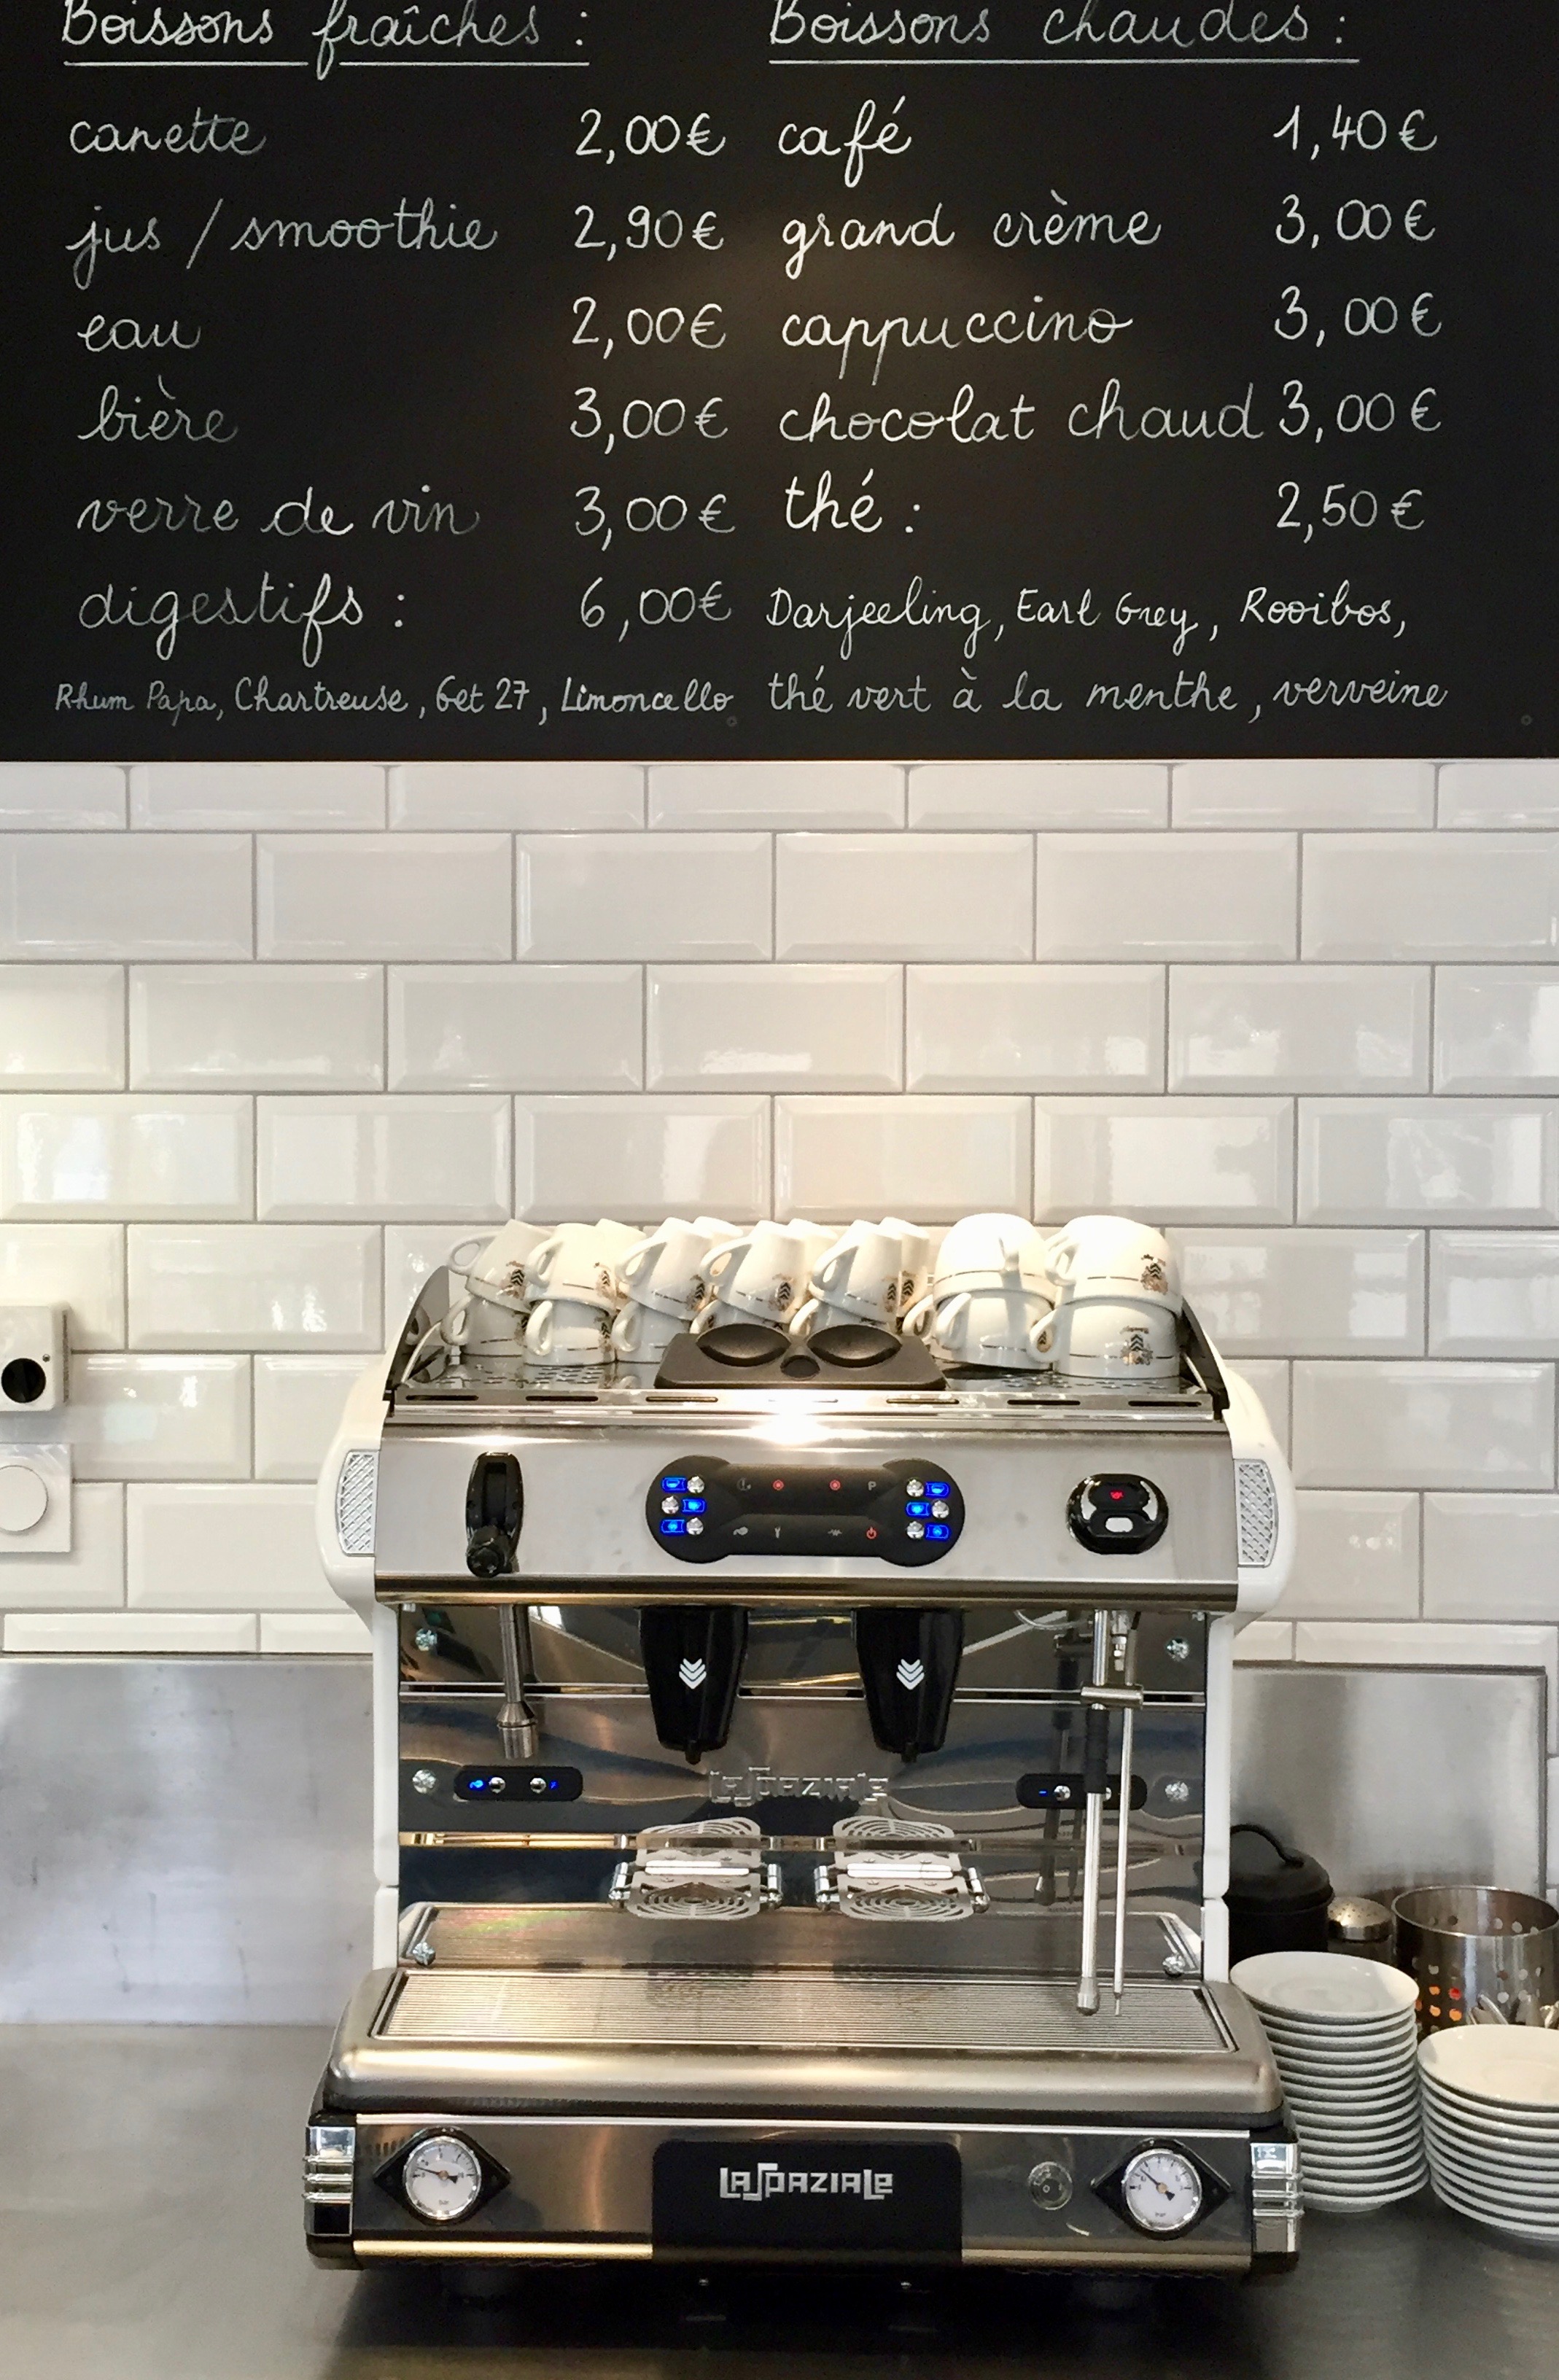 Boissons fraîches :
canette 2,00€
jus / smoothie 2,90€
eau 2,00€
bière 3,00€
verre de vin 3,00€
digestifs : 6,00€
Rhum Papa, Chartreuse, Get 27, Limoncello
Boissons chaudes :
café 1,40€
grand crème 3,00€
cappuccino 3,00€
chocolat chaud 3,00€
thé : 2,50€
Darjeeling, Earl Grey, Rooibos,
thé vert à la menthe, verveine
P
LaSpaziale
LaSpaziale